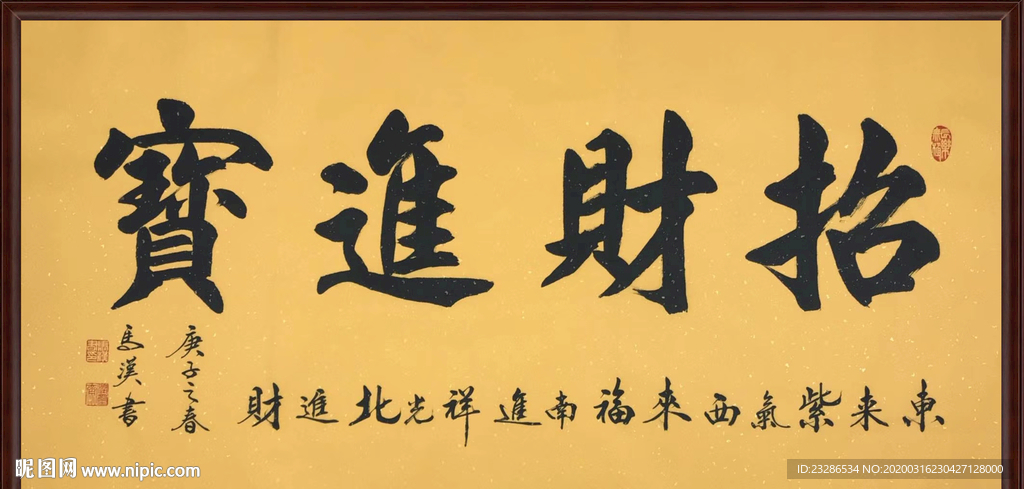 招財進寶
東来紫氣西來福南進祥光北進財
庚子之春
馬漢書
昵图网 www.nipic.com
ID:23286534 NO:20200316230427128000